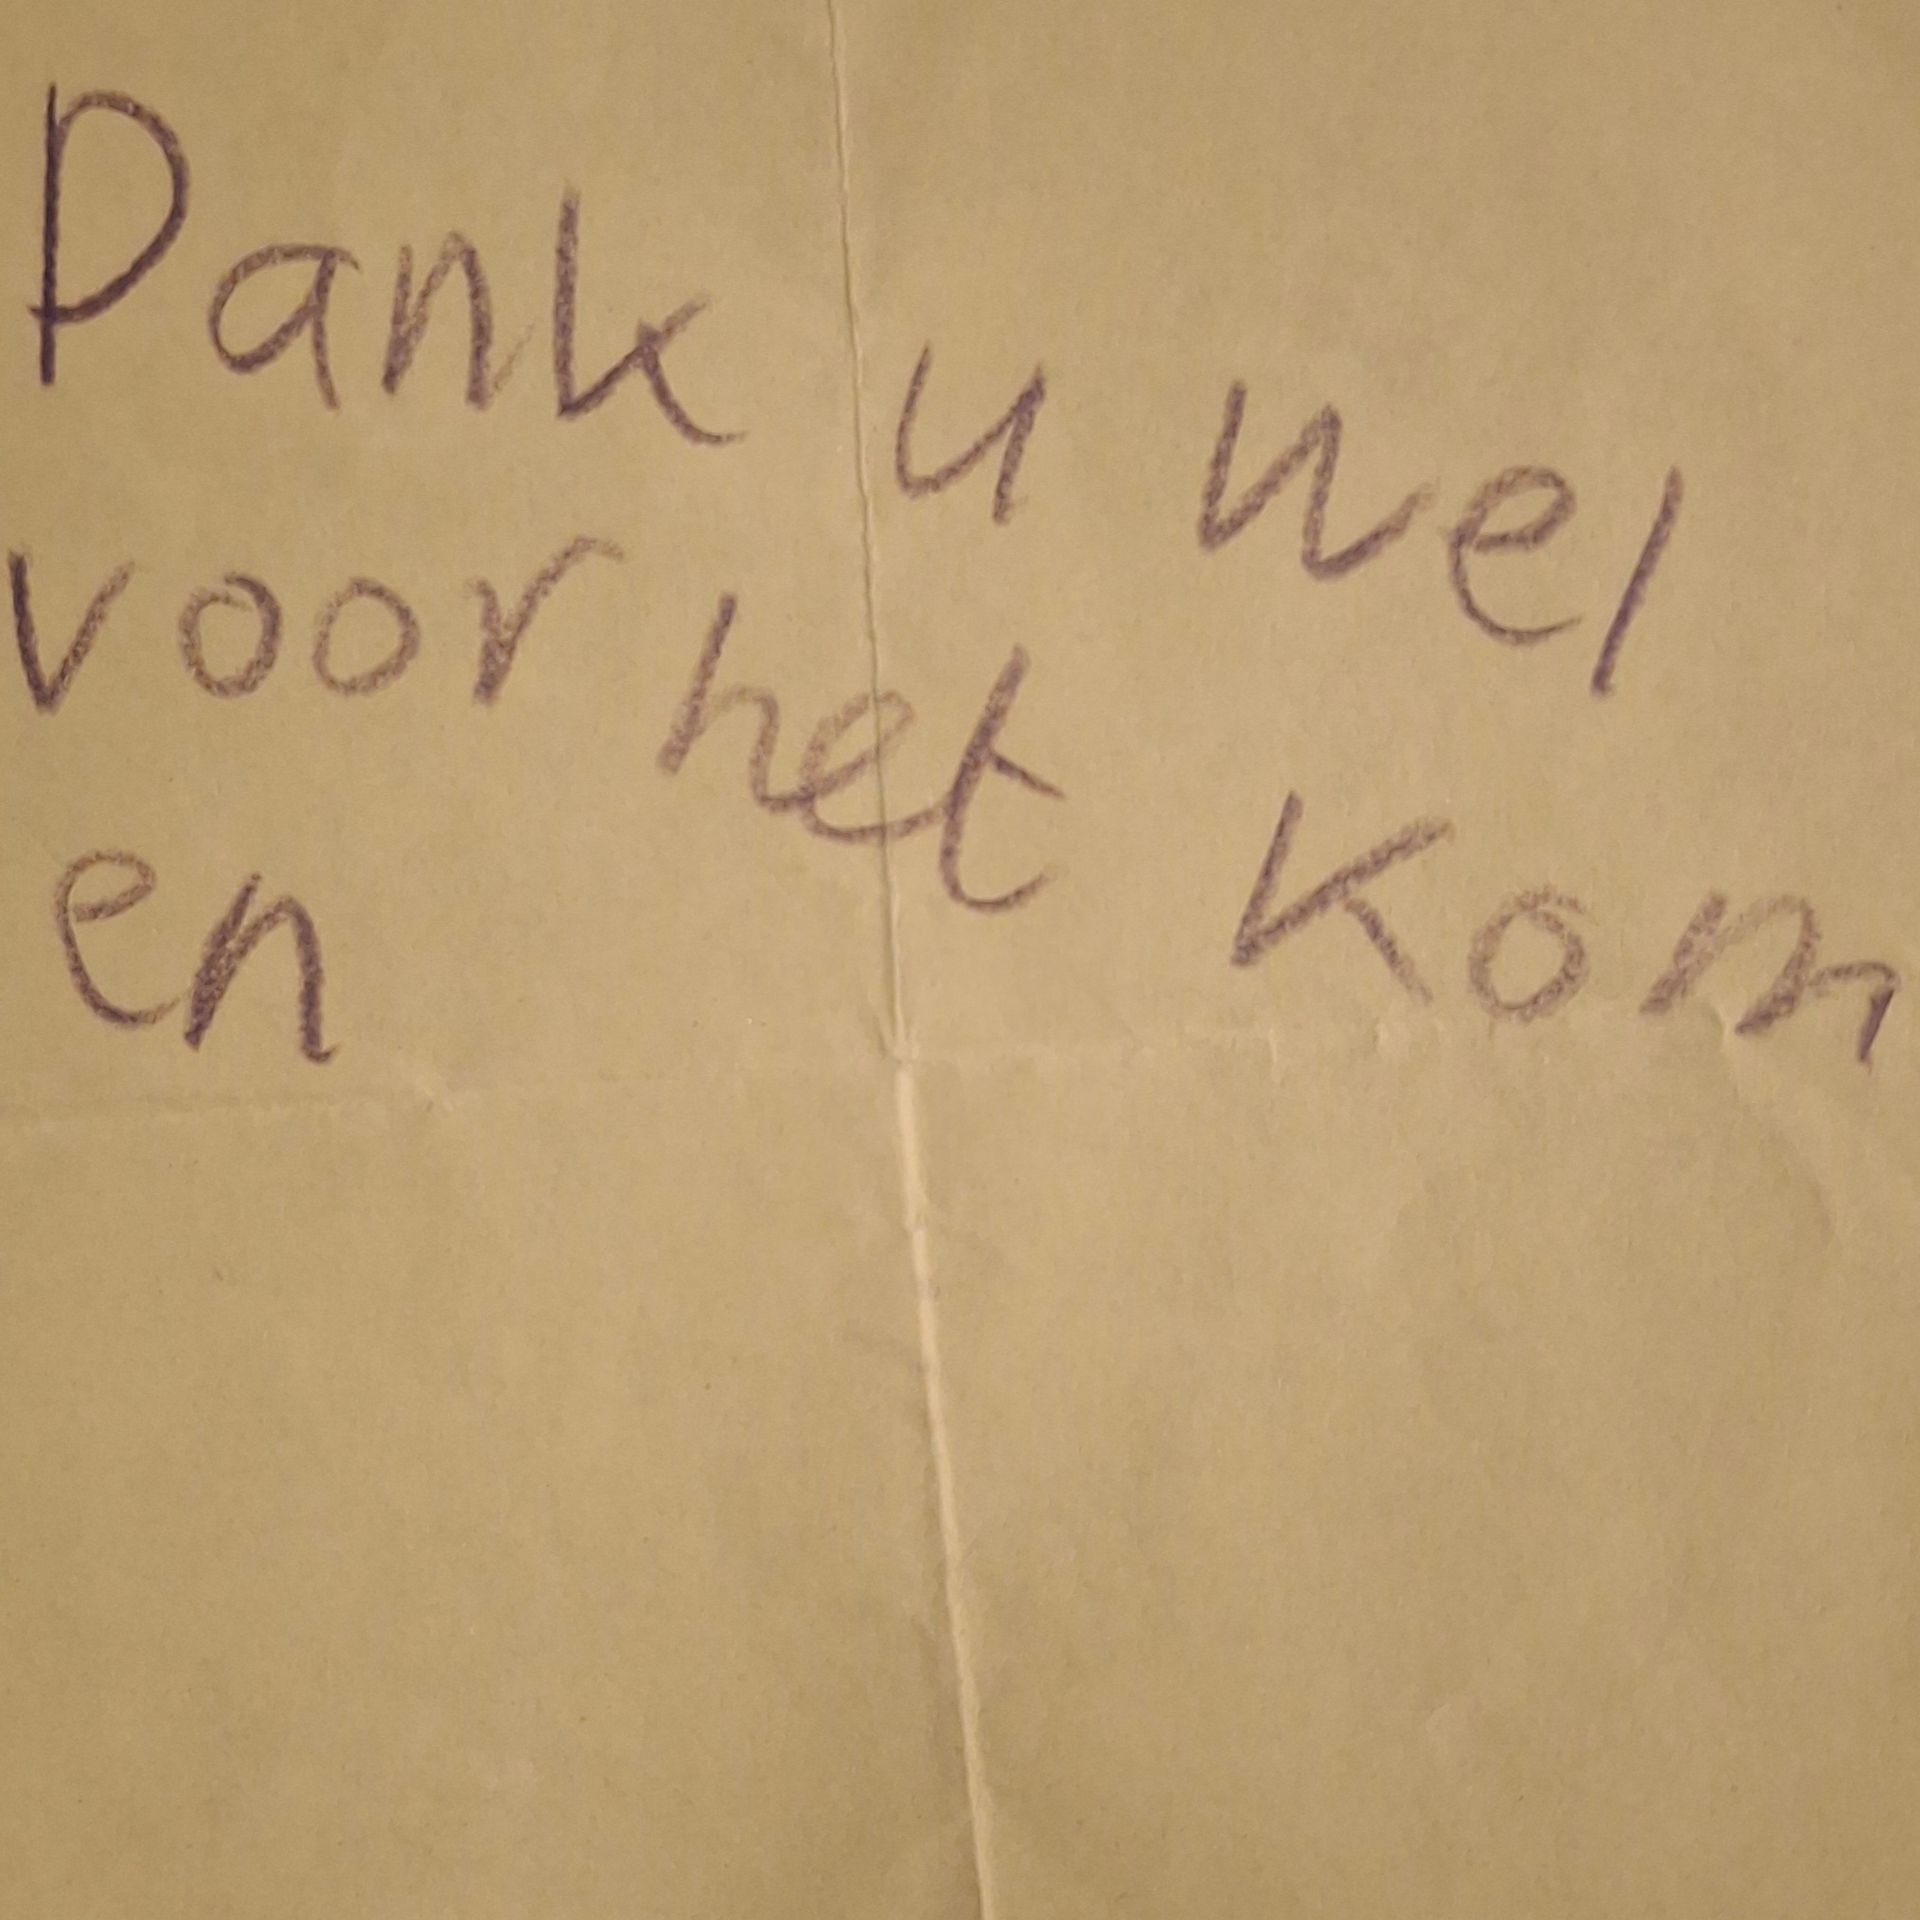 Dank u wel
voor het kom
en